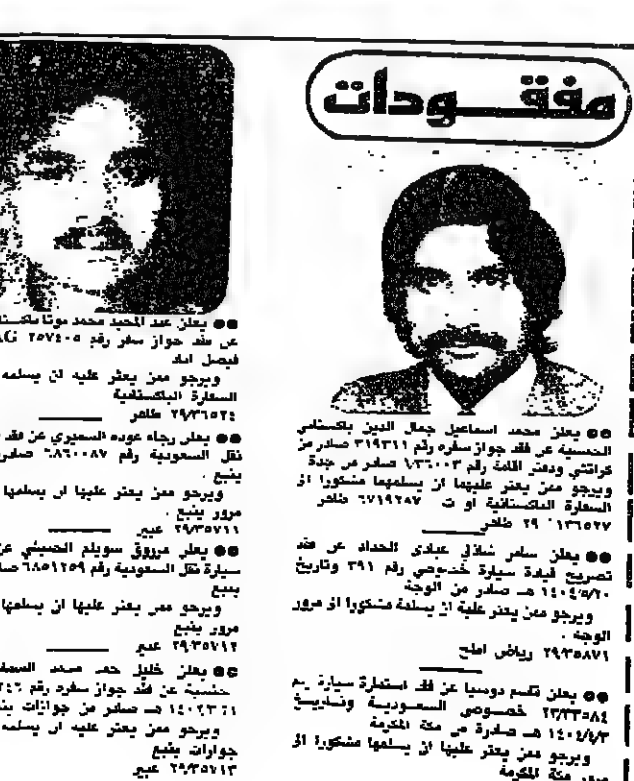 مفقودات
●● يعلن محمد اسماعيل جمال الدين باكستاني
الجنسية عن فقد جواز سفره رقم ٣١٩٣١١ صادر من
كراتشي ودفتر اقامة رقم ١/٣٦٠٠٣ صادر من جدة
ويرجو ممن يعثر عليهما ان يسلمهما مشكورا الى
السفارة الباكستانية او ت ٦٧١٩٢٥٧ طاهر
٢٩٠١٣٦٥٢٧ طاهر
●● يعلن سامر شاذلي عبادي الحداد عن فقد
تصريح قيادة سيارة خصوصي رقم ٣٩١ وتاريخ
١٤٠٤/٥/٢٠ هـ صادر من الوجه
ويرجو ممن يعثر علية ان يسلمة مشكورا الى مرور
الوجة .
٢٩/٣٥٨٧١ رياض املج
●● يعلن قاسم دوسيا عن فقد استمارة سيارة
٢٣/٣٣٥٨٤ خصوصي السعودية وتاريخ
١٤٠٤/٤/٣ هـ صادرة من مكة المكرمة
ويرجو ممن يعثر عليها ان يسلمها مشكورا الى
مرور مكة المكرمة
●● يعلن عبد المجيد محمد
عن فقد جواز سفر رقم ٢٥٧٤٠٥
فيصل اباد
ويرجو ممن يعثر عليه ان يسلمه
السفارة الباكستانية
٢٩/٣٦٥٢٤ طاهر
●● يعلن رجاء عوده السميري عن فقد
نقل السعودية رقم ٦٨٦٠٠٨٧ صادر
ينبع .
ويرجو ممن يعثر عليها ان يسلمها
مرور ينبع .
٢٩/٣٥٧١١ عبير
●● يعلن مرزوق سويلم الصيفي عن
سيارة نقل السعودية رقم ٦٨٥١٢٥٩
ينبع
ويرجو ممن يعثر عليها ان يسلمها
مرور ينبع
٢٩/٣٥٧١٢ عبير
●● يعلن خليل حمد محمد
جنسية عن فقد جواز سفره رقم
هـ صادر من جوازات
ويرجو ممن يعثر عليه ان يسلمه
جوازات ينبع
٢٩/٣٥٧١٣ عبير